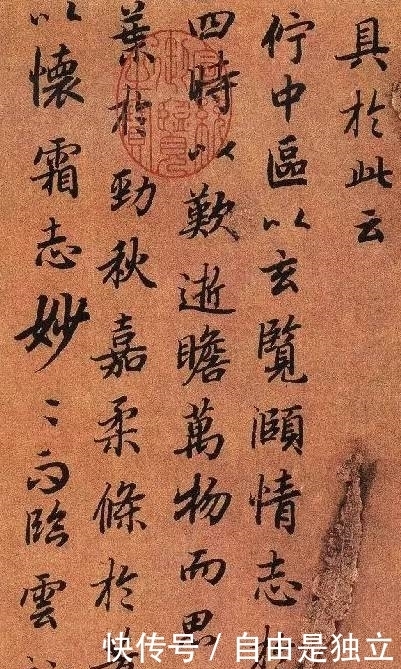 具於此云
佇中區以玄覽頤情志
四時以歎逝瞻萬物而思
葉於勁秋嘉柔條於
以懷霜志妙〻而臨雲
快传号 / 自由是独立